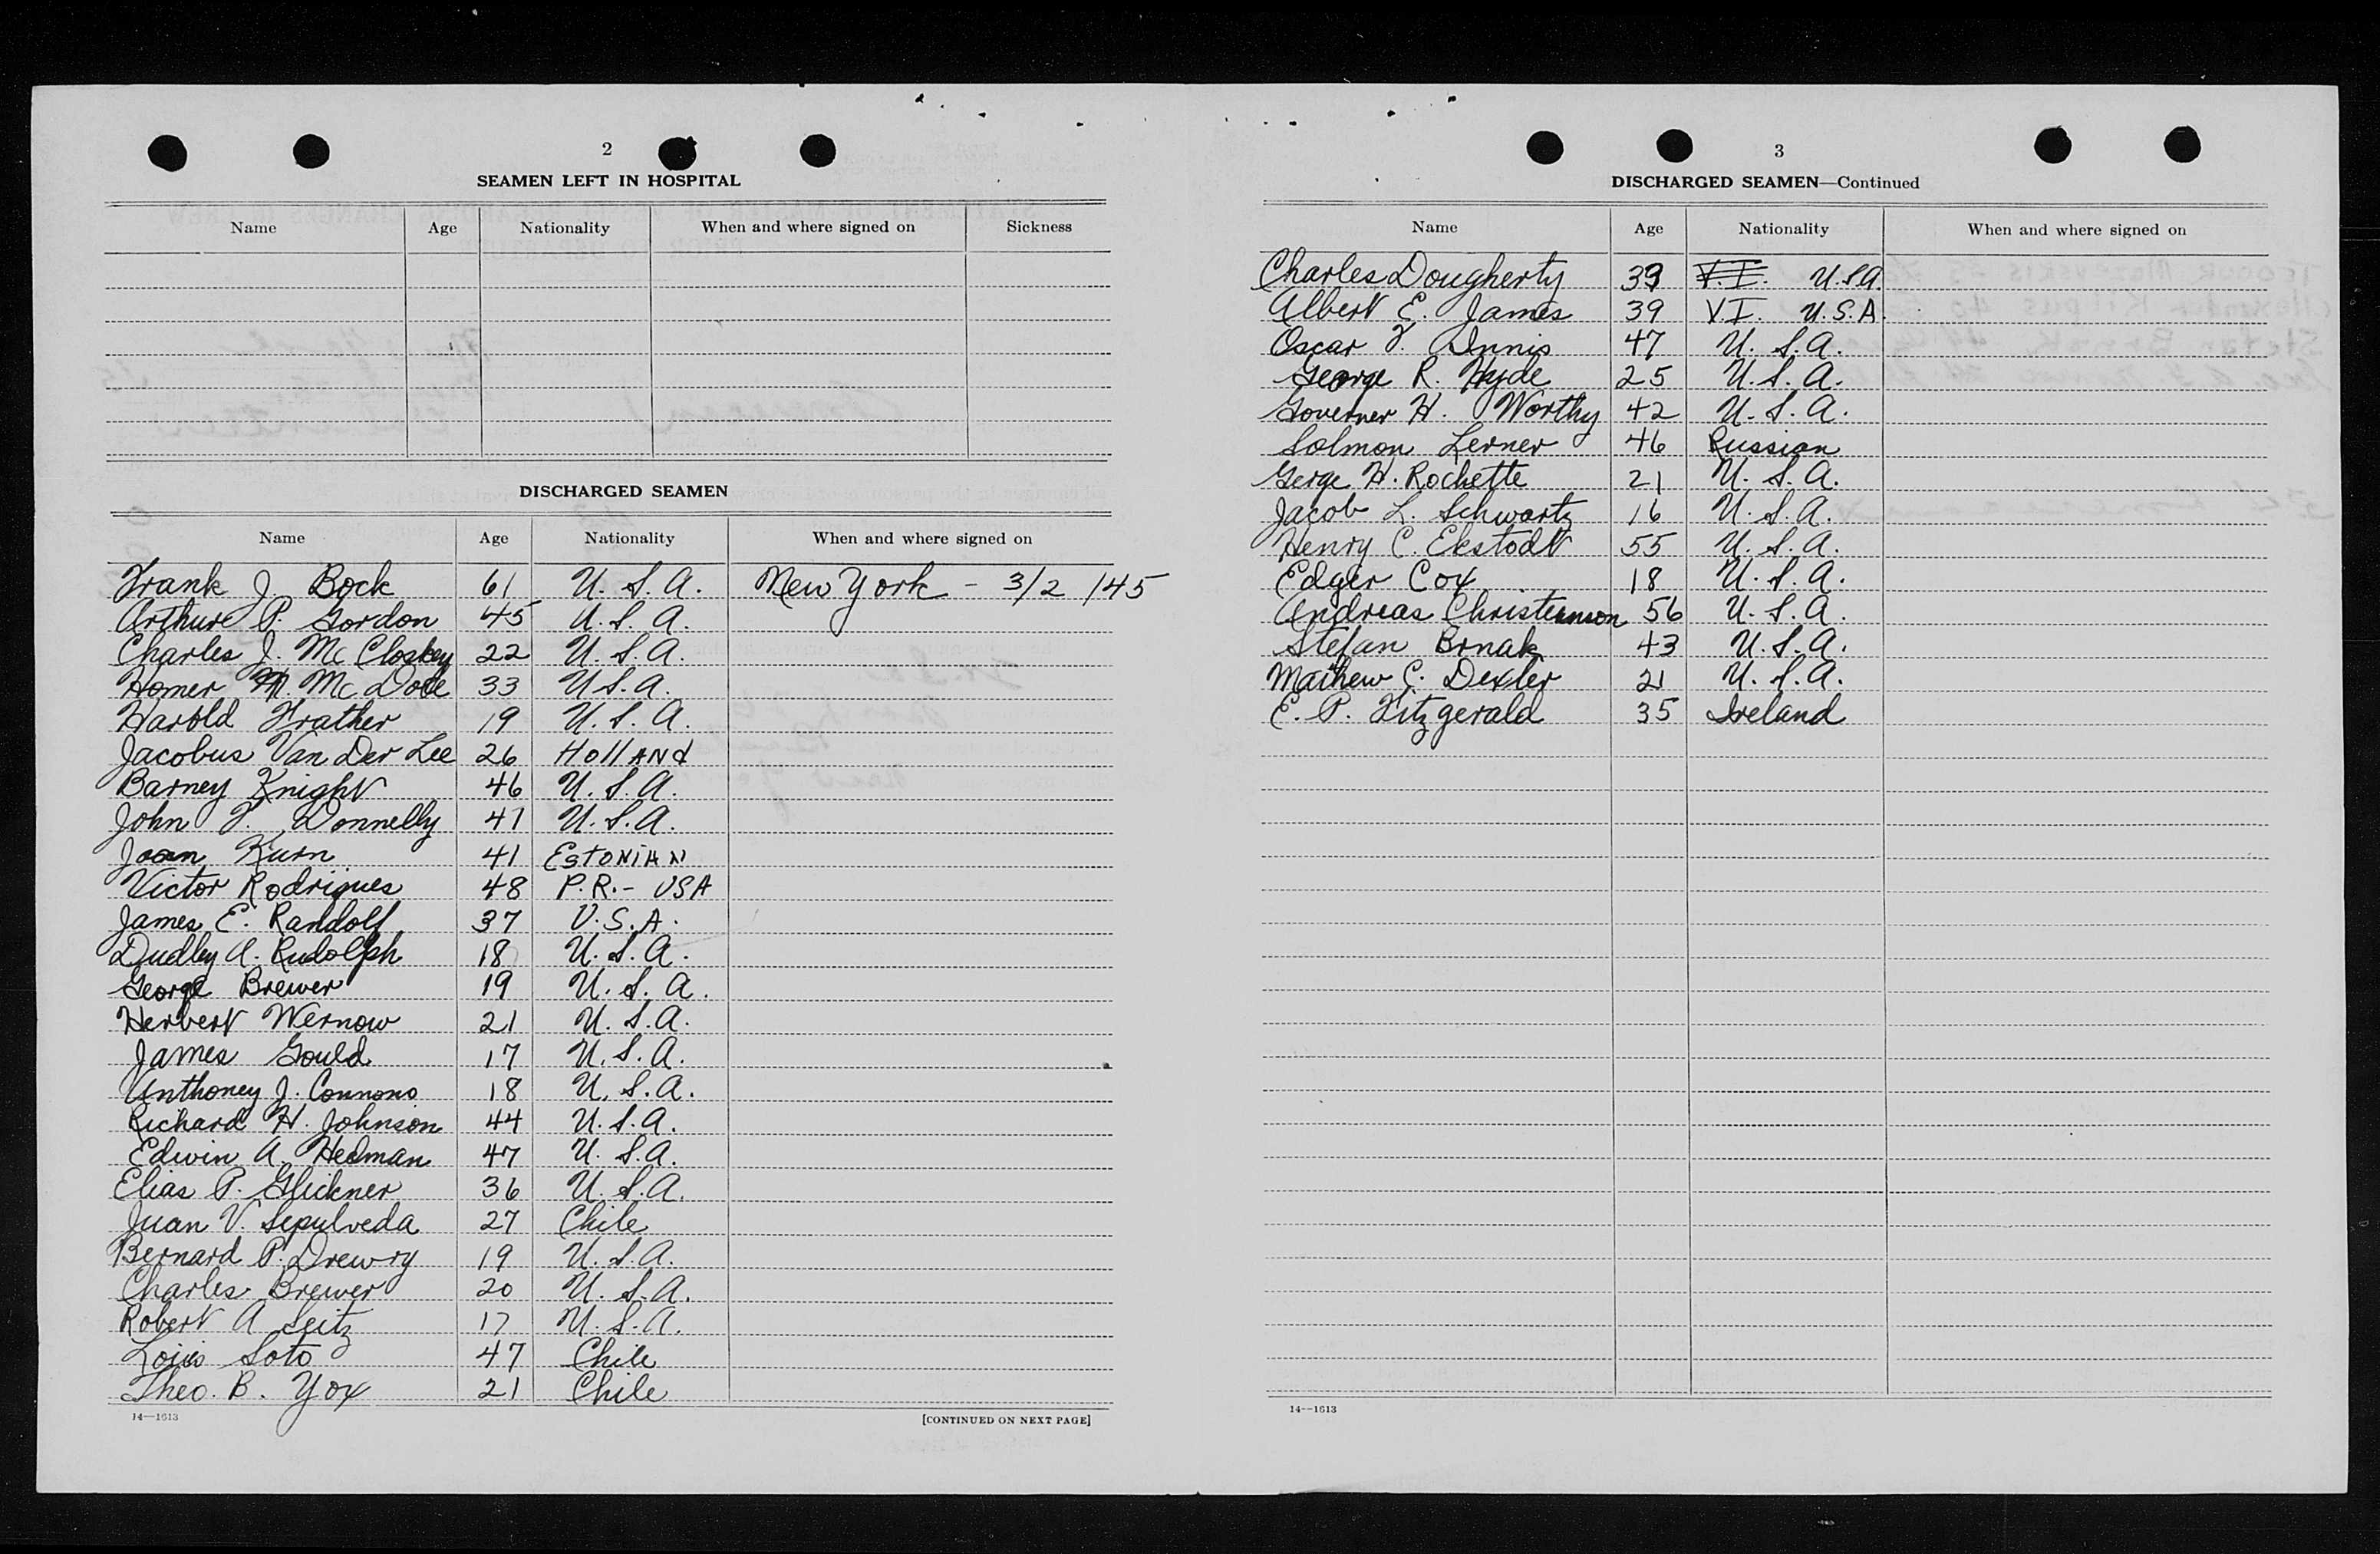 2
SEAMEN LEFT IN HOSPITAL
Name Age Nationality When and where signed on Sickness
DISCHARGED SEAMEN
Name Age Nationality When and where signed on
Frank J. Bock 61 U. S. A. New York - 3/2/45
Arthur P. Gordon 45 U. S. A.
Charles J. McCloskey 22 U. S. A.
Homer M. 33 U S. A.
Harold Frather 19 U. S. A.
Jacobus Van Der Lee 26 HollANd
Barney Knight 46 U. S. A.
John F. Donnelly 41 U. S. A.
Kurn 41 EstONiAN
Victor Rodrigues 48 P.R.- USA
James E. Randolf 37 U.S.A.
Dudley A. Rudolph 18 U. S. A.
George Brewer 19 U. S. A.
Herbert Wernow 21 U. S. A.
James Gould 17 U. S. A.
Anthoney J. Connons 18 U. S. A.
Richard H. Johnson 44 U. S. A.
Edwin A. Hedman 47 U. S. A.
Elias P. Glickner 36 U. S. A.
Juan V. Sepulveda 27 Chile
Bernard P. Drewry 19 U. S. A.
Charles Brewer 20 U. S. A.
Robert A Seitz 17 U. S. A.
Soto 47 Chile
Theo. B. Yox 21 Chile
14—1613 [CONTINUED ON NEXT PAGE]
3
DISCHARGED SEAMEN—Continued
Name Age Nationality When and where signed on
Charles Dougherty 39 V.I. U.S.A.
Albert E. James 39 V.I. U.S.A.
Oscar F. Innis 47 U. S. A.
George R. Hyde 25 U. S. A.
Governer H. Worthy 42 U. S. A.
Solmon Lerner 46 Russian
Gerge H. Rochette 21 U. S. A.
Jacob L. Schwartz 16 U. S. A.
Henry C. Ekstodt 55 U. S. A.
Edger Cox 18 U. S. A.
Andreas 56 U. S. A.
Stefan Brnak 43 U. S. A.
Mathew C. Dexler 21 U. S. A.
E. P. Fitzgerald 35 Ireland
14—1613